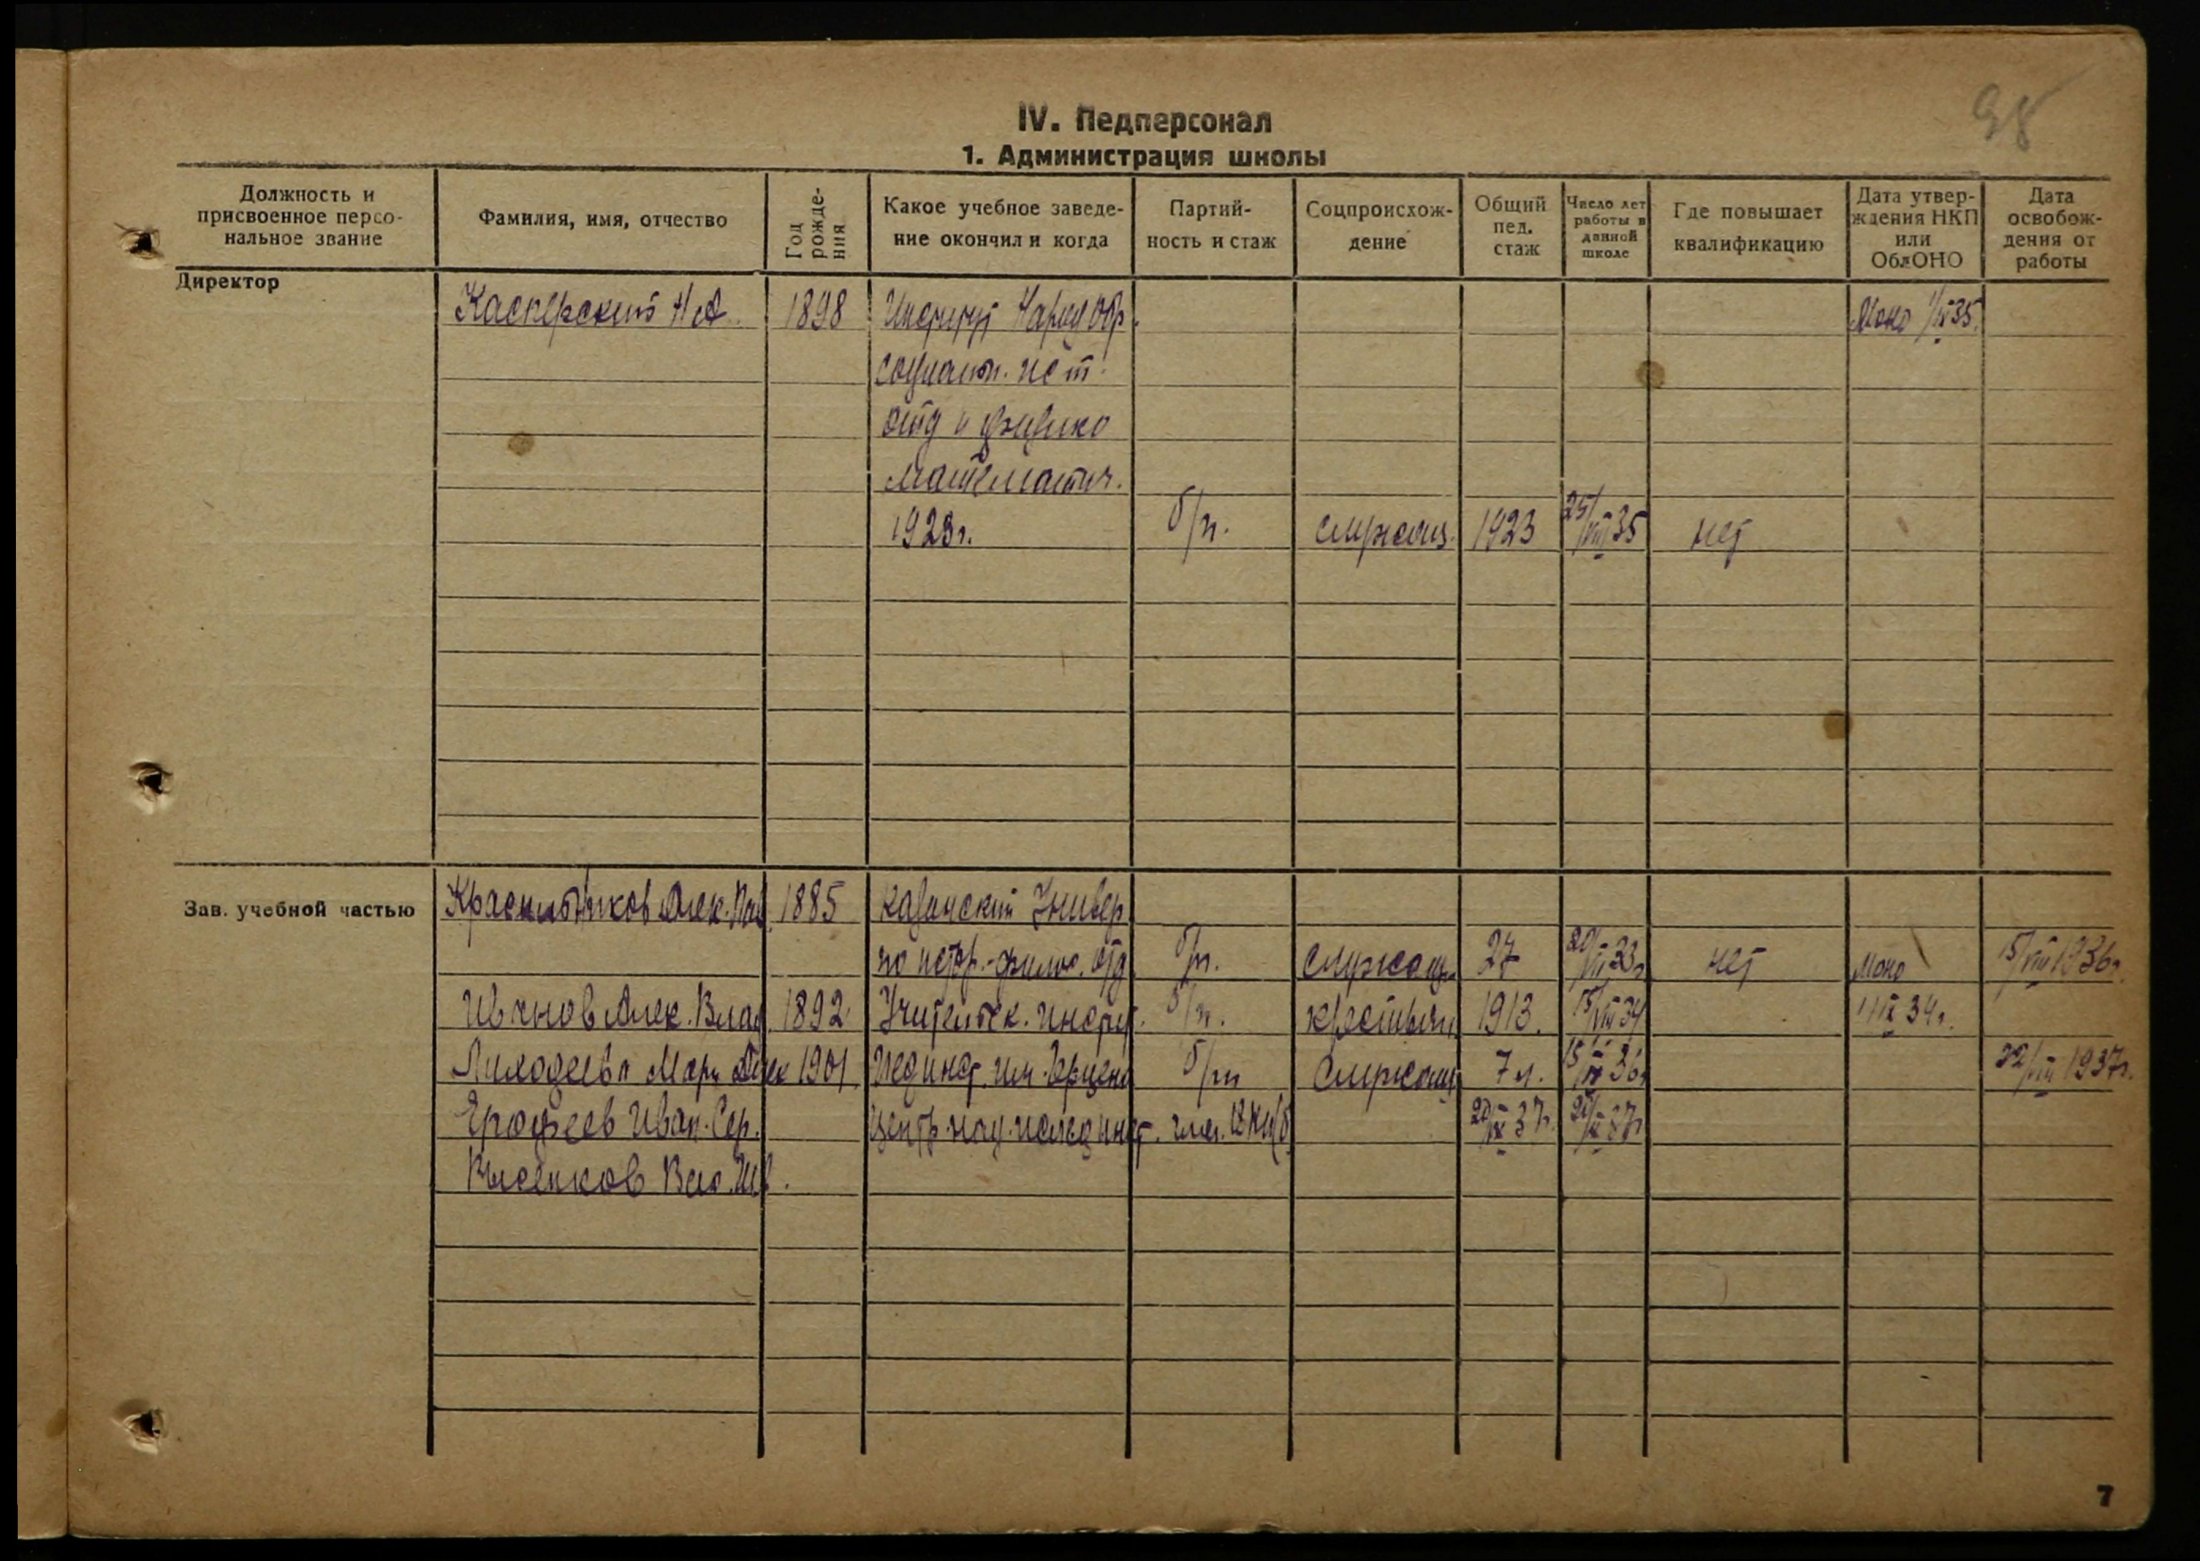 98
IV. Педперсонал
1. Администрация школы
Должность и присвоенное персо-нальное звание
Фамилия, имя, отчество
Год рожде-ния
Какое учебное заведе-ние окончил и когда
Партий-ность и стаж
Соцпроисхож-дение
Общий пед. стаж
Число лет работы в данной школе
Где повышает квалификацию
Дата утвер-ждения НКП или ОблОНО
Дата освобож-дения от работы
Директор
Касперский Н А. 1898 Институт Народ Обр. Моно 1/IX 35.
социальн. ист.
отд и физико
математич.
1923г. б/п. служащ. 1923 25/VIII 35 нет
Зав. учебной частью
Красильников Алек. Пав. 1885 Казанский Универ
по истор.-филос. отд б/п. служащ. 27 нет Моно 15/VIII 1936г.
Иванов Алек. Влад. 1892 Учительск. инстит. б/п. крестьян 1913. 15/VIII 34 1/IX 34г.
Лиходеева Мари Алек 1901 Пединст. им. Герцена б/п служащ 7 л. 15/IX 36 22/VIII 1937г.
Ерофеев Иван. Сер. Центр науч. исслед инст. 20/IX 37г. 20/IX 37г
Вас. Ив.
7